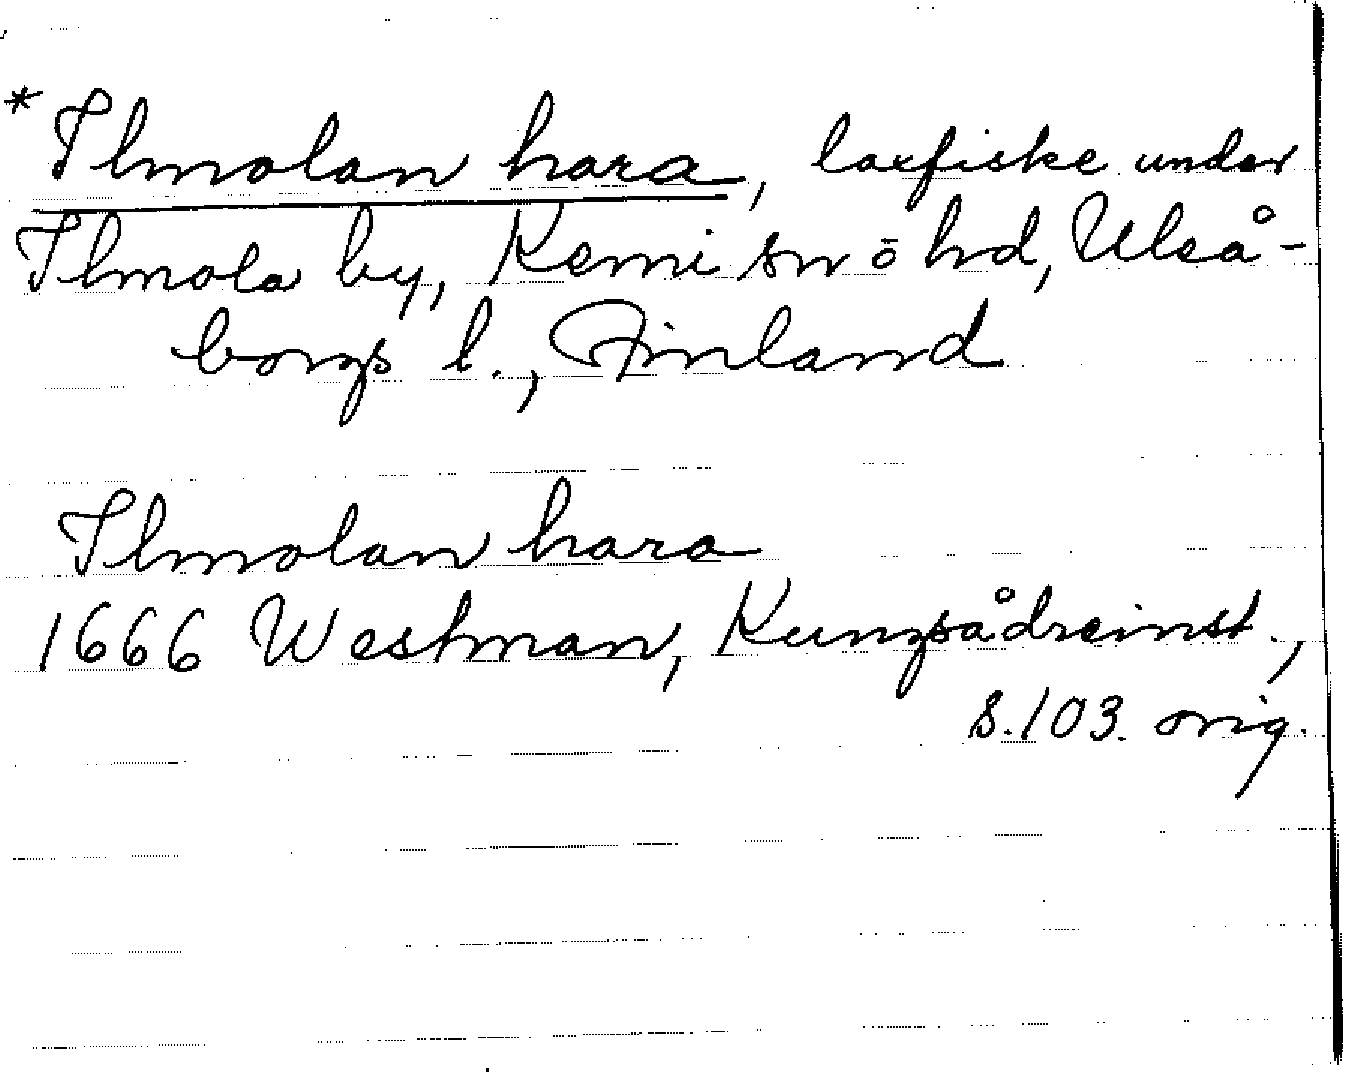 *Ilmolan hara, laxfiske under
Ilmola by, Kemi sn ō hd, Uleå-
borgs l., Finland
Ilmolan hara
1666 Westman, Kungsådreinst.,
s. 103. orig.